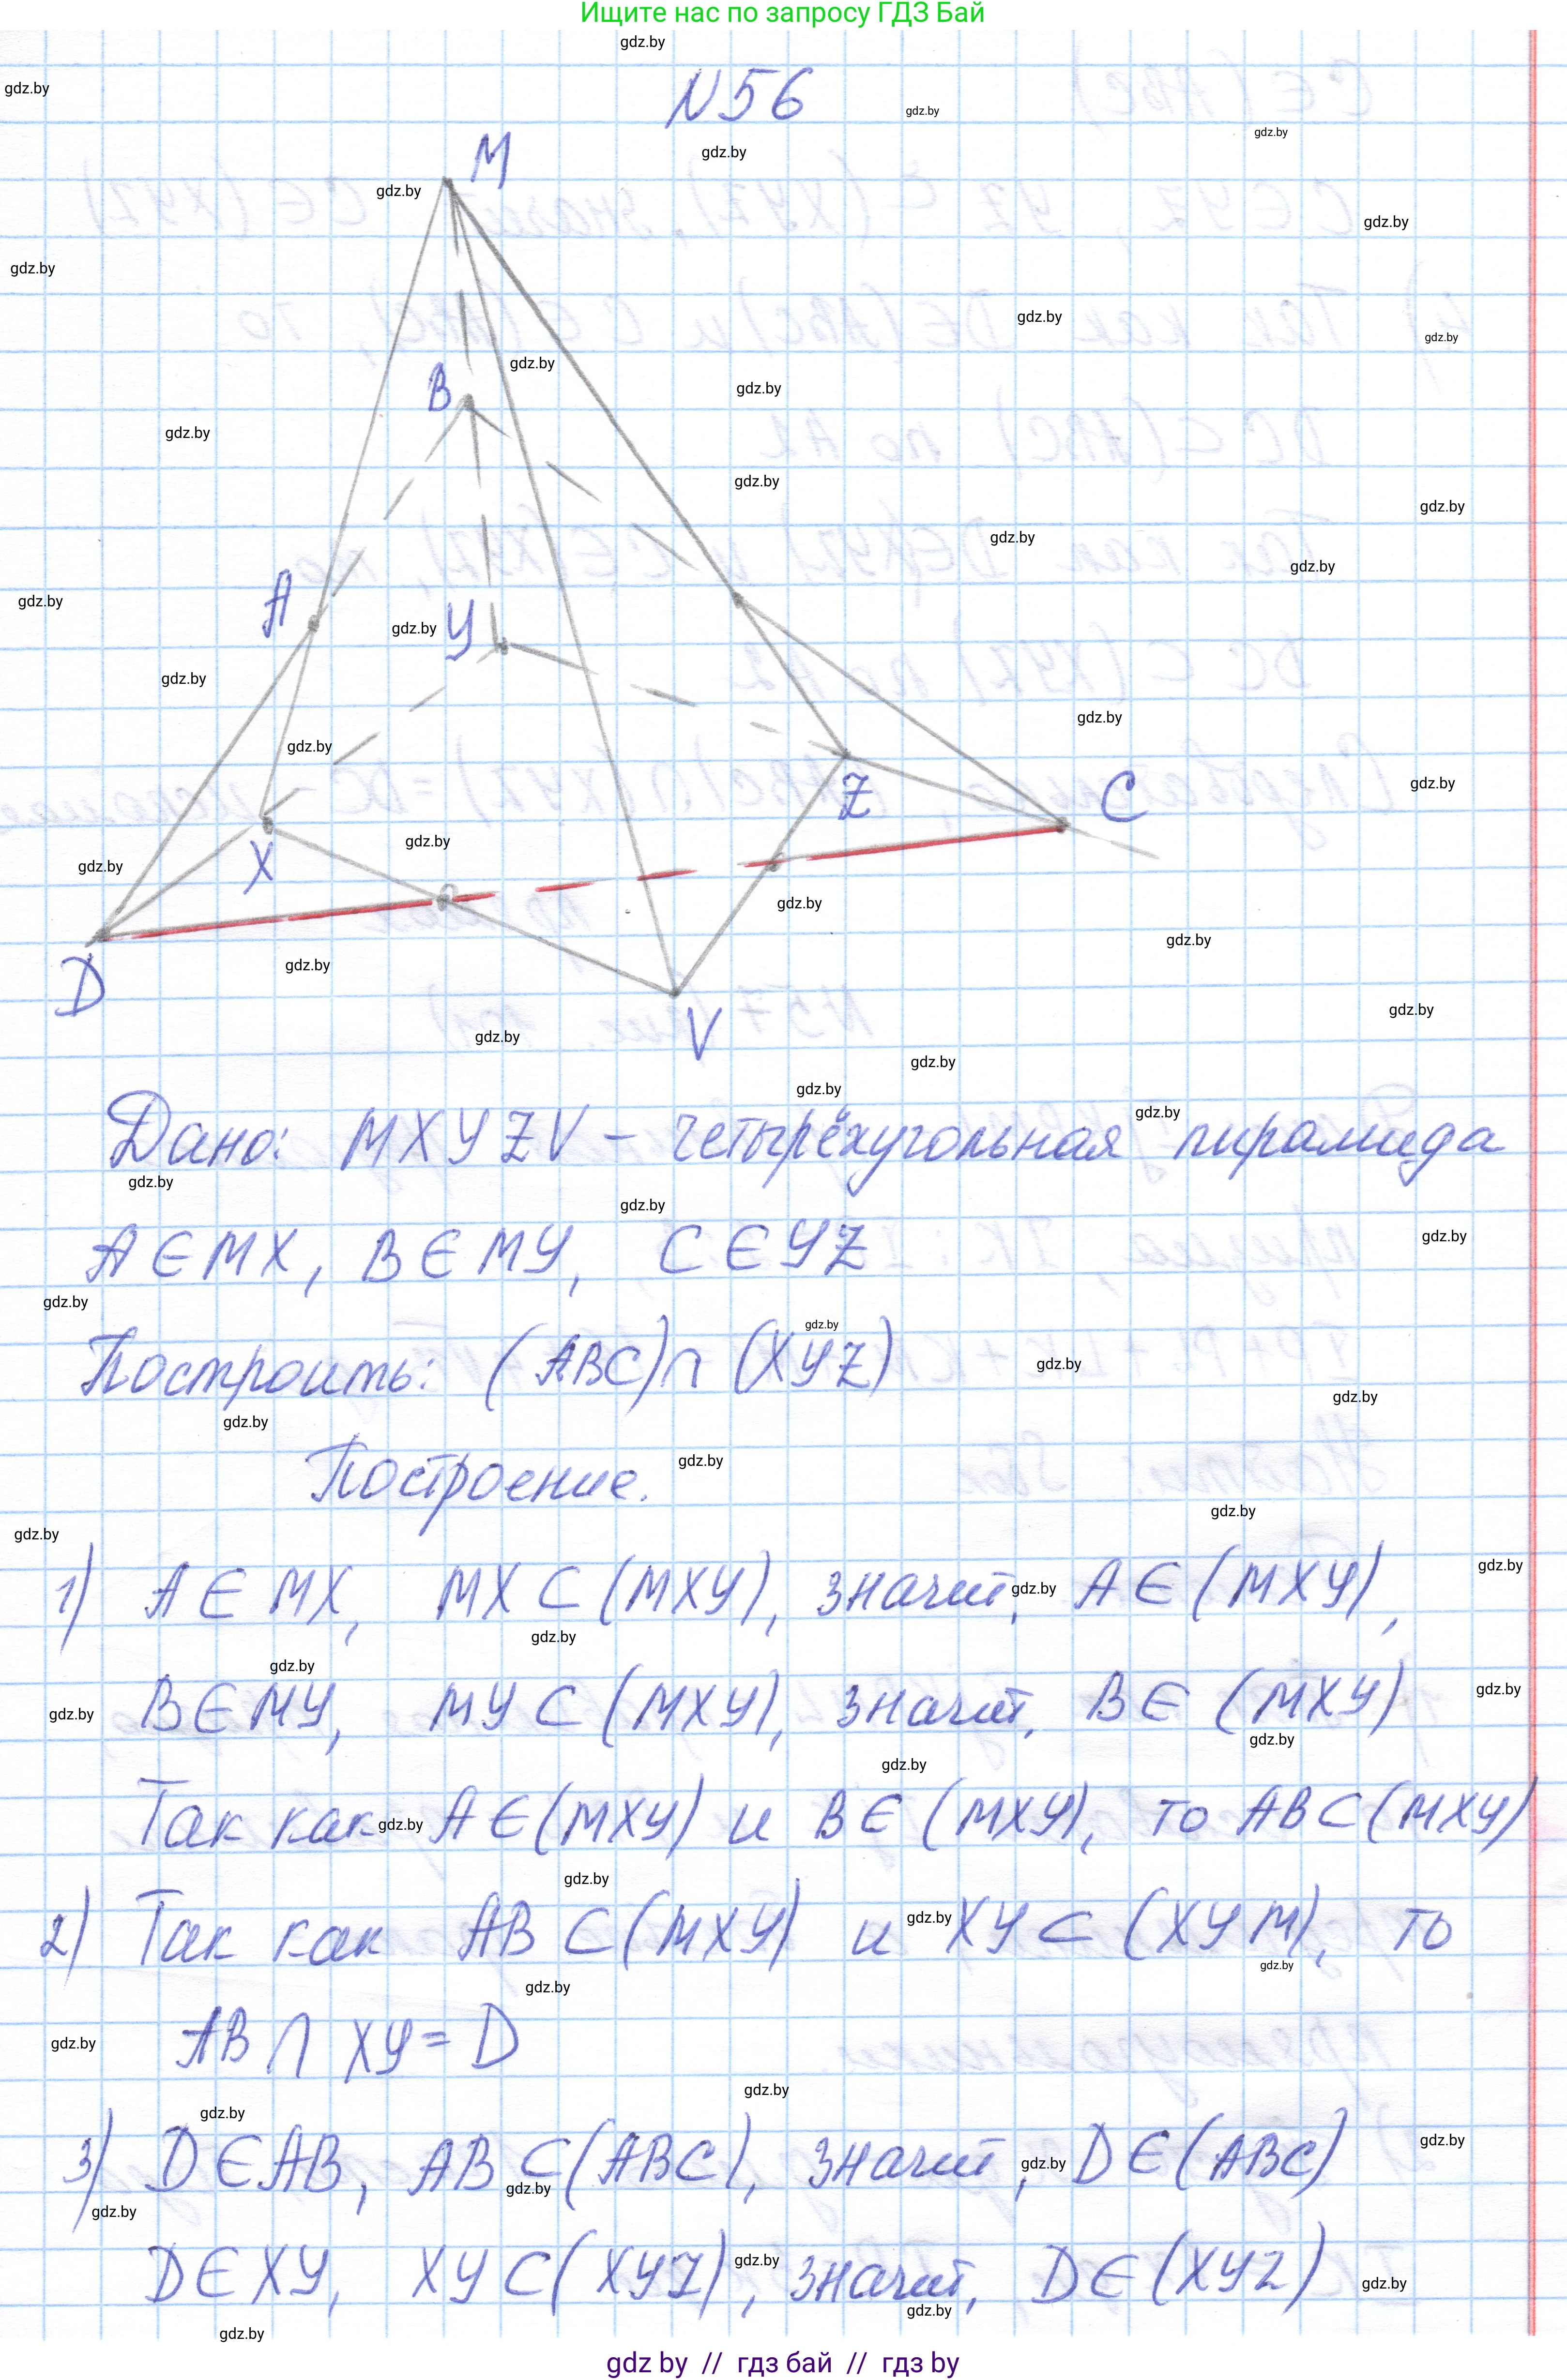 Ищите нас по запросу ГДЗ Бай
N56
M
B
A
У
Z
C
X
D
V
Дано: MXУZV – четырёхугольная пирамида
A∈MX, B∈MУ, C∈УZ
Построить: (ABC)∩(XУZ)
Построение.
1) A∈MX, MX⊂(MXУ), значит, A∈(MXУ),
B∈MУ, MУ⊂(MXУ), значит, B∈(MXУ)
Так как A∈(MXУ) и B∈(MXУ), то AB⊂(MXУ)
2) Так как AB⊂(MXУ) и XУ⊂(XУM), то
AB∩XУ=D
3) D∈AB, AB⊂(ABC), значит, D∈(ABC)
D∈XУ, XУ⊂(XУZ), значит, D∈(XУZ)
gdz by // гдз бай // gdz by